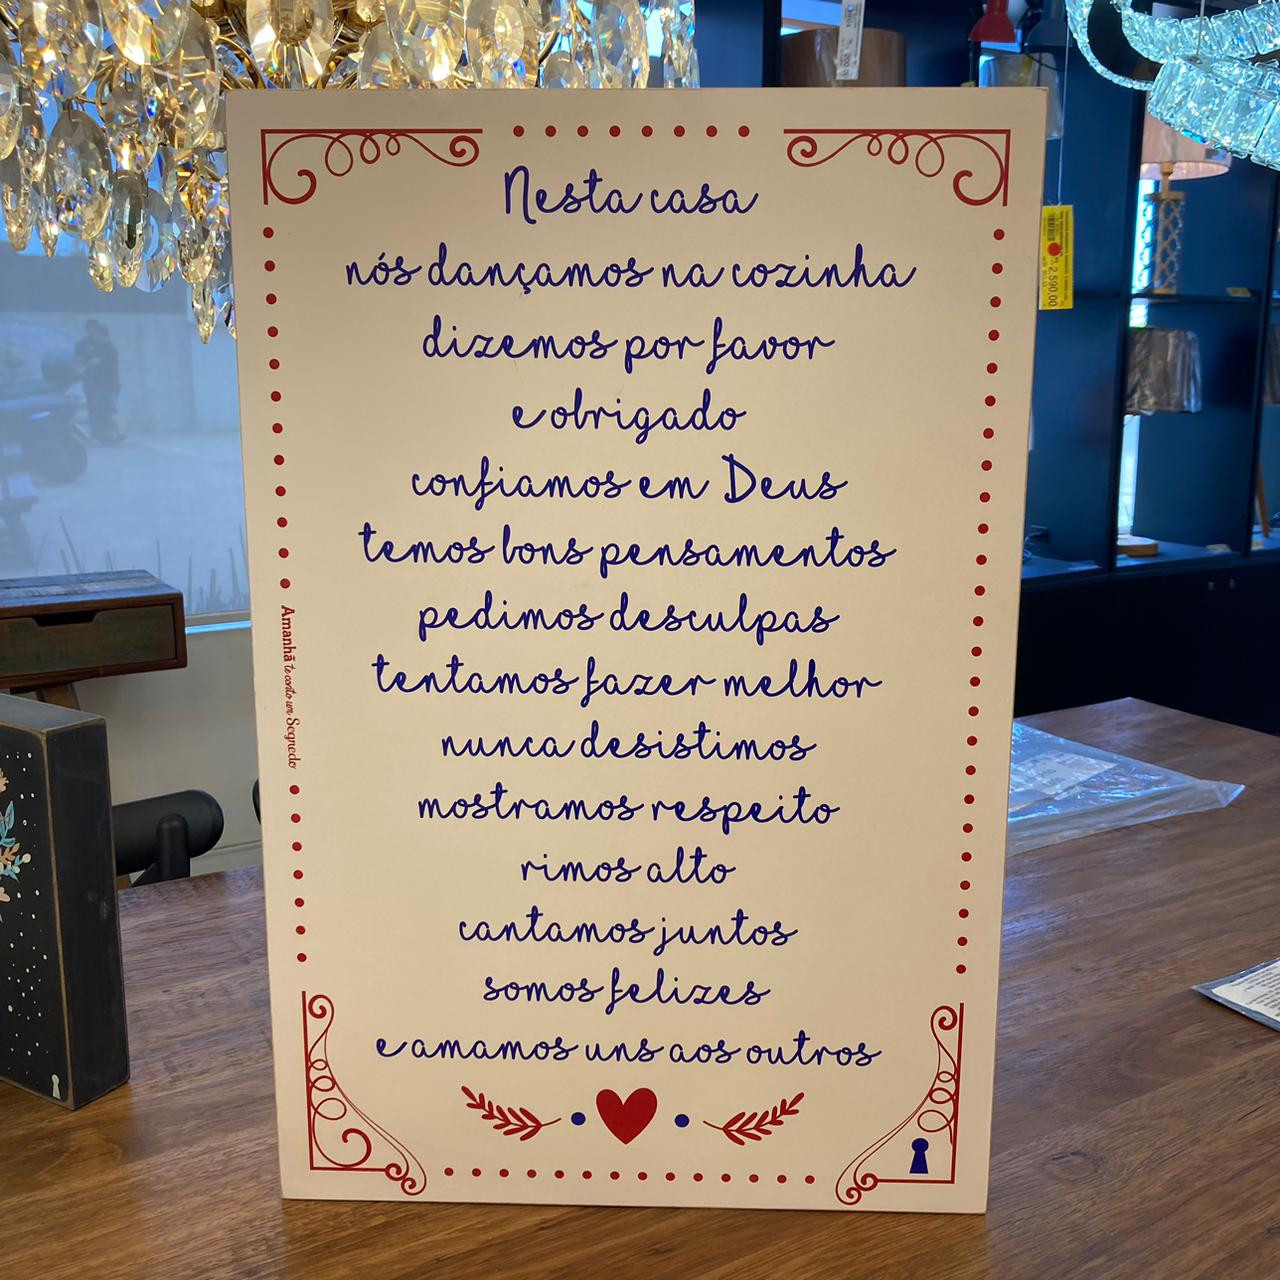 Nesta casa
nós dançamos na cozinha
dizemos por favor
e obrigado
confiamos em Deus
temos bons pensamentos
pedimos desculpas
tentamos fazer melhor
nunca desistimos
mostramos respeito
rimos alto
cantamos juntos
somos felizes
e amamos uns aos outros
Amanhã te conto um Segredo
2.590,00